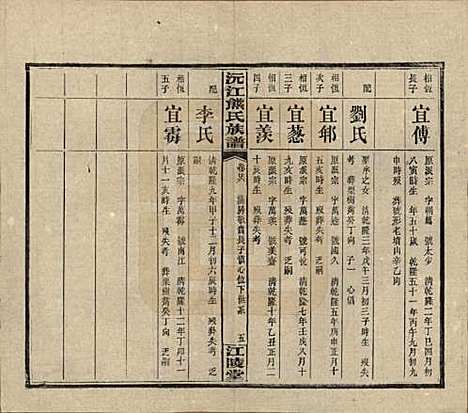 相恆長子
宜傅
原派宗 字朝爵 號太少 清乾隆二年丁巳四月初八寅時生 年五十歲 乾隆五十一年丙午九月初九申時殁 葬號形老墳山辛乙向
配
劉氏
聚序之女 清乾隆三年戊午三月初三子時生 殁失考 葬梨樹灣癸丁向 子一 心僖
相恆次子
宜郫
原派宗 字萬 號國久 清乾隆五年庚申九月十五亥時生 殁葬失考
相恆三子
宜蔥
原派宗 字萬 號可 清乾隆七年壬戌八月十九亥時生 殁葬失考 乏嗣
相恆四子
宜羨
原派宗 字萬 號美齋 清乾隆十年乙丑正月二十亥時生 殁葬失考
沅江熊氏族譜
卷 貴長子僖心位下世系
五
江陵堂
配
李氏
清乾隆九年甲子十二月初六辰時生 殁葬失考 乏嗣
相恆五子
宜霱
原派宗 字萬 號南江 清乾隆十二年丁卯十一月十一亥時生 殁失考 葬梨樹灣癸丁向